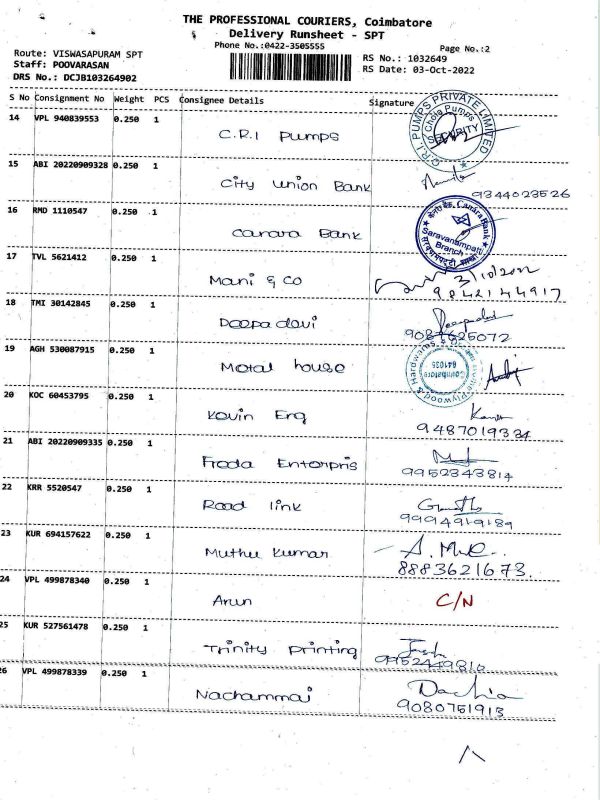 THE PROFESSIONAL COURIERS, Coimbatore
Delivery Runsheet - SPT
Phone No.:0422-3505555
Page No.:2
Route: VISWASAPURAM SPT
RS No.: 1032649
Staff: POOVARASAN
RS Date: 03-Oct-2022
DRS No.: DCJB103264902
S No Consignment No Weight PCS Consignee Details Signature
14 VPL 940839553 0.250 1 C.R.I Pumps
C.R.I. PUMPS PRIVATE LIMITED
SECURITY
15 ABI 20220909328 0.250 1 City Union Bank
9344023526
16 RMD 1110547 0.250 1 Canara Bank
Canara Bank
Saravanampatti
Branch
17 TVL 5621412 0.250 1 Mani & Co
3/10/2022
9842144917
18 TMI 30142845 0.250 1 Deepa devi
9087625072
19 AGH 530087915 0.250 1 Metal house
Plywood & Hardwares
Coimbatore
641035
20 KOC 60453795 0.250 1 Kovin Eng
9487019334
21 ABI 20220909335 0.250 1 Froda Enterpris
9952343814
22 KRR 5520547 0.250 1 Road link
9994919189
23 KUR 694157622 0.250 1 Muthu Kumar
8883621673.
24 VPL 499878340 0.250 1 Arun C/N
25 KUR 527561478 0.250 1 Trinity Printing
9952449810
26 VPL 499878339 0.250 1 Nachammai
9080751913